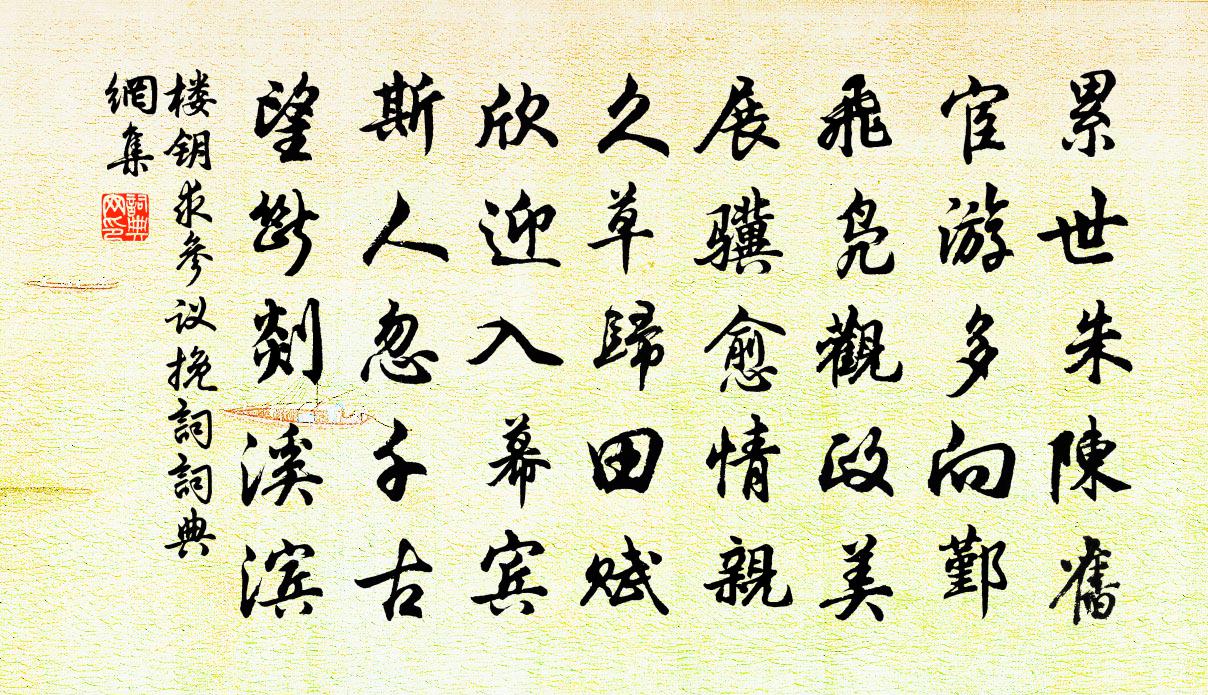 累世朱陳舊
宦游多向鄞
飛凫觀政美
展骥愈情親
久草歸田赋
欣迎入幕宾
斯人忽千古
望断剡溪滨
楼钥求参议挽詞詞典
網集
詞典
网印